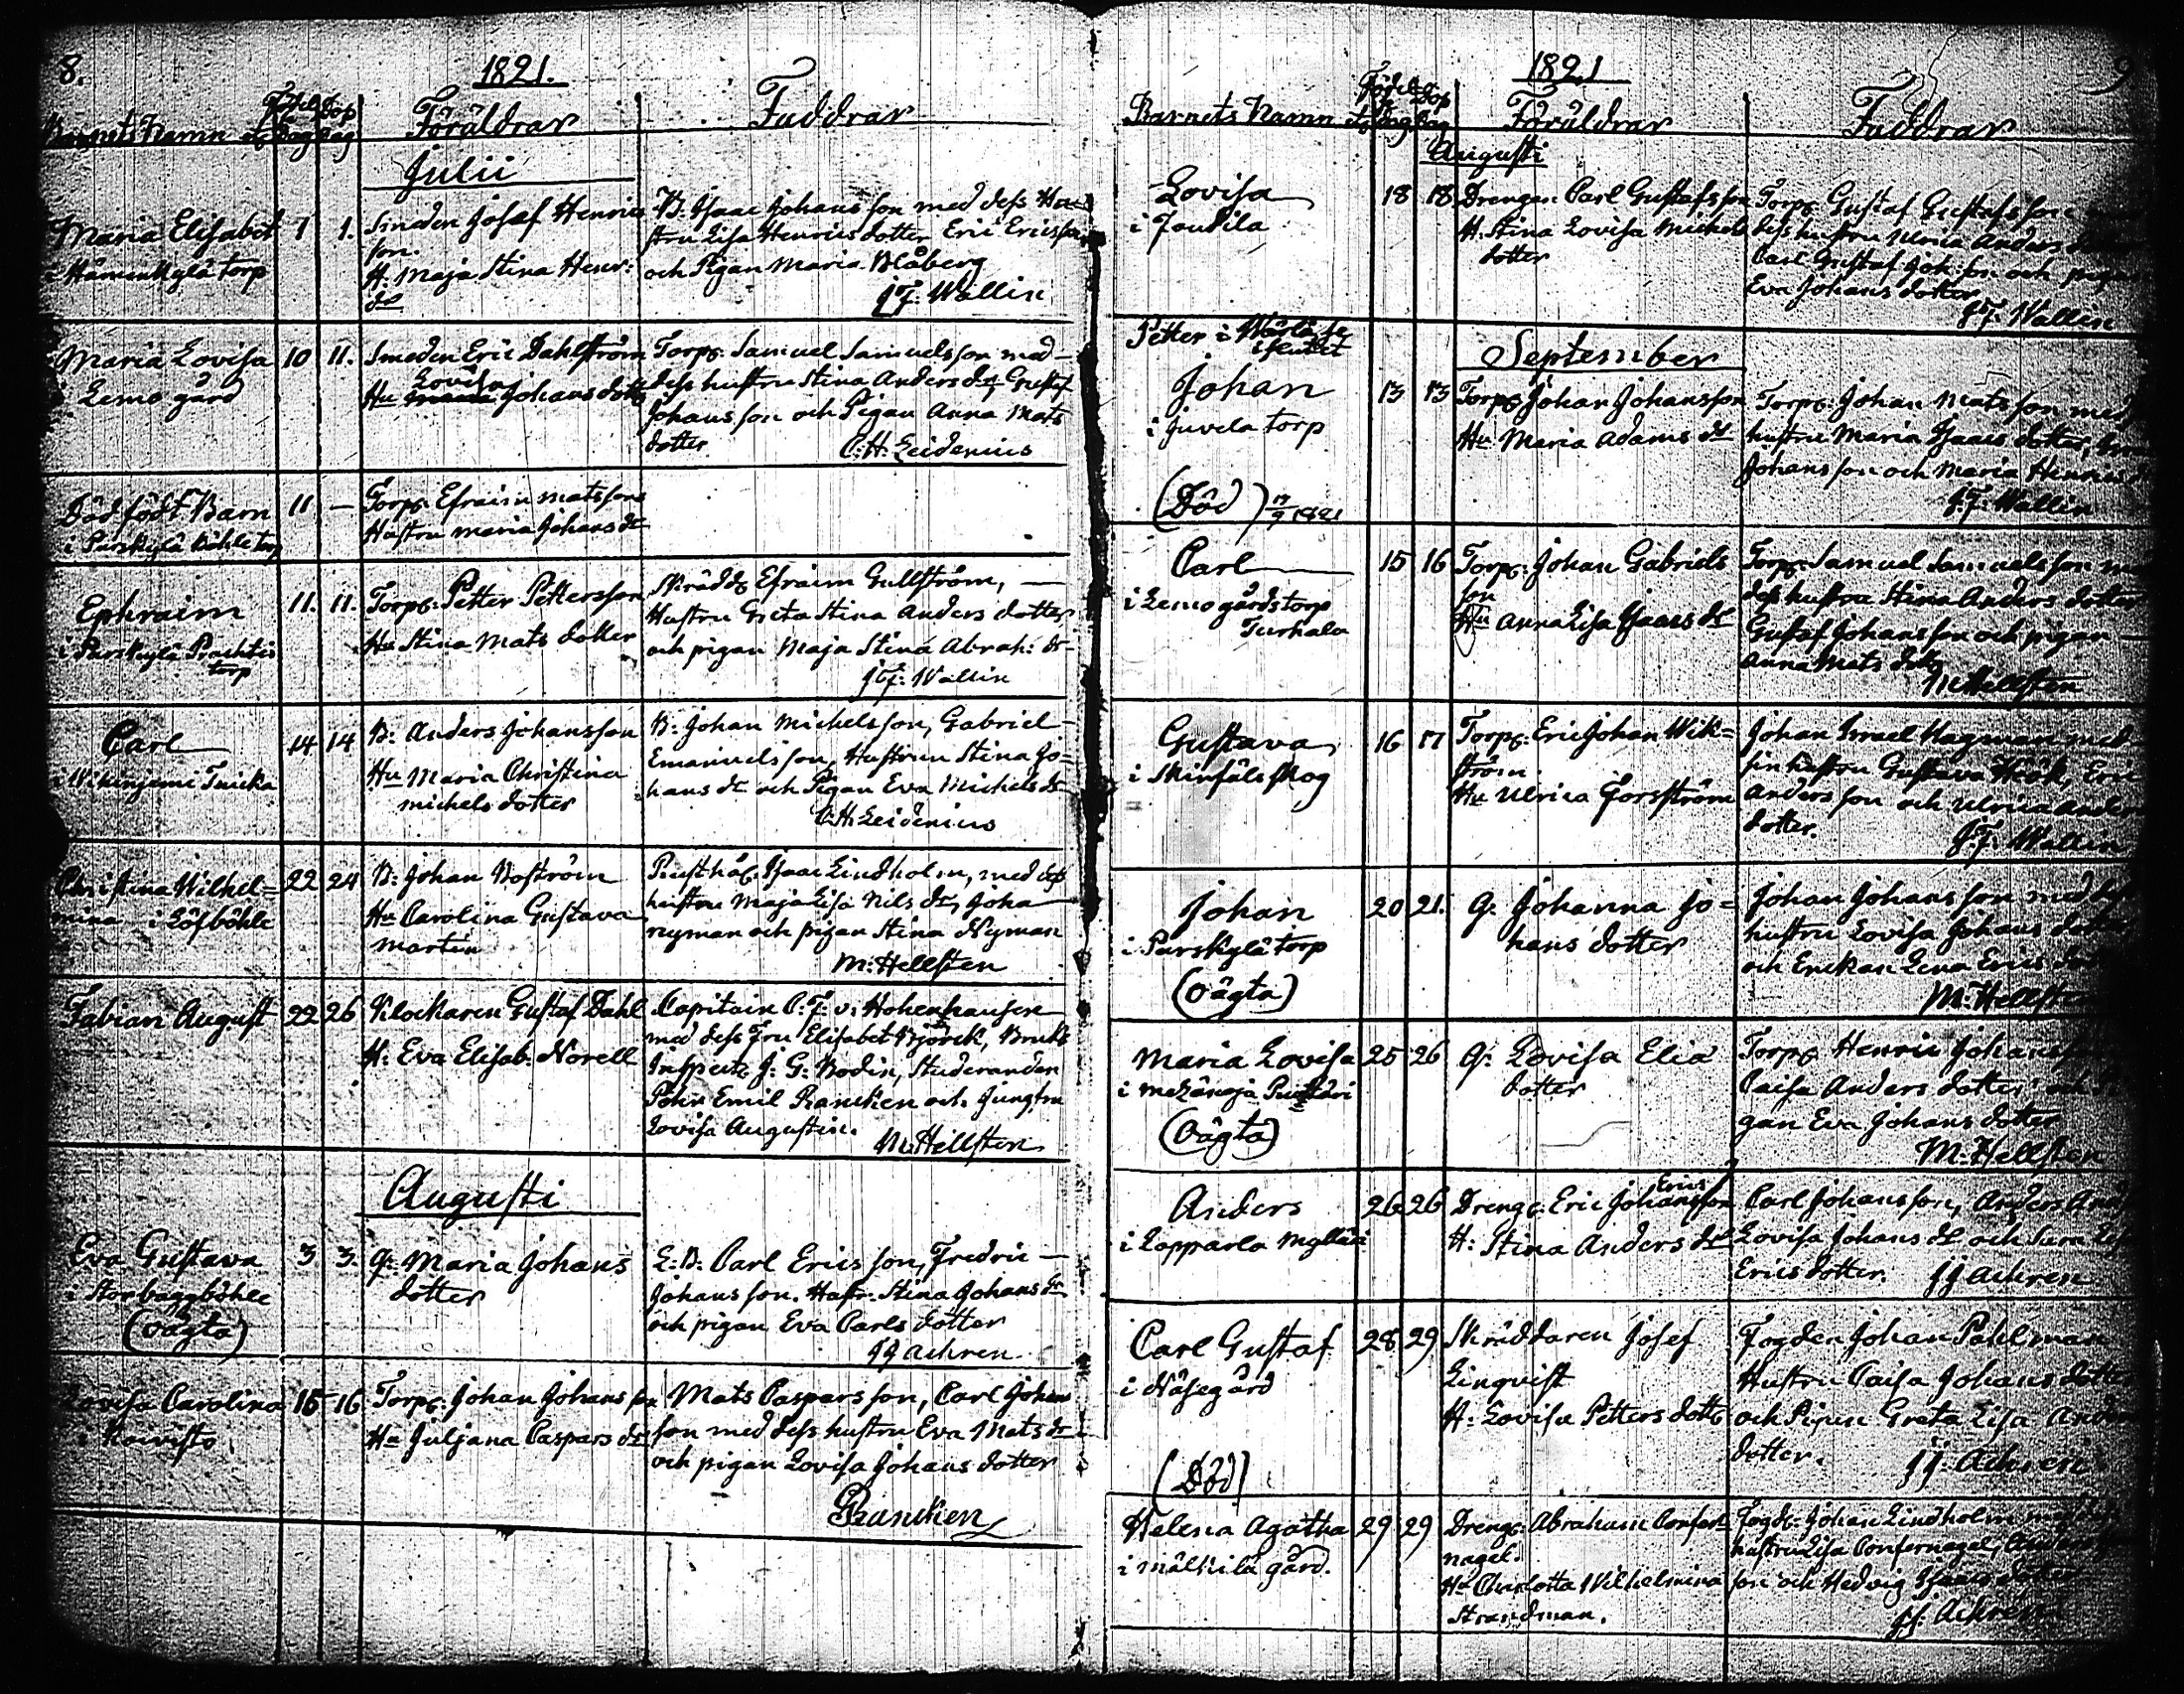 8.
1821.
Barnets Namn etc
Födelse Dag
Dop dag
Föräldrar
Faddrar
Julii
Maria Elisabet
i Hämenkylä torp
1
1.
Josef Henrics
son.
H. Maja Stina Henr:
dr
B. Isaac Johansson med dess Hu-
stru Lisa Henrics dotter Eric Ericsson
och Pigan Maria Blåberg
J.F. Wallin
Maria Lovisa
i Lemo gård
10
11.
Smeden Eric Dahlström
Lovisa
Hu Johans dottr
Torp. Samuel Samuelsson med
dess hustru Stina Anders dr, Gustaf
Johansson och Pigan Anna Mats
dotter
C.H. Zeidenius
Dödfödt Barn
i Purskylä Böhle torp
11
—
Torp. Efraim Matssons
Hustru Maria Johans dr
Ephraim
i Purskylä Prachtis
torp
11.
11.
Torp. Petter Pettersson
Hu Stina Mats dotter
Skrädd. Efraim Gullström, —
Hustru Greta Stina Anders dotter
och pigan Maja Stina Abrah: dr
J.F. Wallin
Carl
14
14
B: Anders Johansson
Hu Maria Christina
Michels dotter
B: Johan Michelsson, Gabriel
Emanuelsson, Hustrun Stina Jo=
hans dr och Pigan Eva Michels dr
C.H. Zeidenius
Christina Wilhel=
mina i Löfböhle
22
24
B: Johan Boström
Hu Carolina Gustava
Martin
Rusthål. Isaac Lindholm, med dess
hustru Maja Lisa Nils dr, Joha
nyman och pigan Stina Nyman
M: Hellsten
Fabian August
22
26
Klockaren Gustaf Dahl
H: Eva Elisab. Norell
Capitain C.F. v. Hohenhausen
med dess Fru Elisabet Björck, Bruks
Inspect. J: G: Bodin, Studeranden
Pehr Emil Rancken och Jungfru
Lovisa Augustin.
M: Hellsten
Augusti
Eva Gustava
i Storbaggböhle
(oägta)
3
3.
Q: Maria Johans
dotter
E: B: Carl Ericsson, Fredric —
Johansson. Hustr. Stina Johans dr
och pigan Eva Carls dotter
JJ Achren
Lovisa Carolina
i Koivisto
15
16
Torp: Johan Johansson
Hu Juliana Caspars dr
Mats Casparsson, Carl Johan
son med dess hustru Eva Mats dr
och pigan Lovisa Johans dotter
Rancken
9
1821
Barnets Namn etc
Födelse Dag
Dop Dag
Föräldrar
Faddrar
Augusti
Lovisa
i Joutila
18
18
Drengen Carl Gustafsson
H. Stina Lovisa Michels
dotter
Torp. Gustaf Gustafsson
dess hustru Ulrica Anders
Carl Gustaf Joh:son och pigan
Eva Johans dotter
J.F. Wallin
Petter i
September
Johan
i Juvela torp
(Död) 17/9 1821
13
13
Torp. Johan Johansson
Hu Maria Adams dr
Torp. Johan Matsson med
hustru Maria Isaacs dotter,
Johansson och Maria Henrics
J.F. Wallin
Carl
i Lemo gårds torp
Turhala
15
16
Torp. Johan Gabriels
son
Hu Anna Lisa Isaacs dr
Torp. Samuel Samuelsson
dess hustru Stina Anders dotter
Gustaf Johansson och pigan —
Anna Mats dottr
M. Hellsten
Gustava
i Skinfälsskog
16
17
Torp. Eric Johan Wik=
ström
Hu Ulrica Forsström
Johan Israel Hagman med
sin hustru Gustava Höök, Eric
Andersson och Ulrica Anders
dotter.
J.F. Wallin
Johan
i Purskylä torp
(oägta)
20
21.
Q. Johanna Jo=
hans dotter
Johan Johansson med dess
hustru Lovisa Johans dotter
och Enckan Lena Erics
M: Hellsten
Maria Lovisa
(Oägta)
25
26
Q. Lovisa Elia
dotter
Torp. Henric Johansson
Caisa Anders dotter och Pi
gan Eva Johans dotter
M. Hellsten
Anders
i Lopparla Mylläri
26
26
Erics
Dreng. Eric Johansson
H: Stina Anders dr
Carl Johansson, Anders
Lovisa Johans dr och Sara
Erics dotter. JJ Achren
Carl Gustaf
i Näsegård
(Död)
28
29
Skräddaren Josef
Linqvist
H: Lovisa Petters dottr
Fogden Johan Pahlman
Hustru Caisa Johans dotter
och Pigan Greta Lisa Anders
dotter. JJ. Achren
Helena Agatha
i Mälkilä gård.
29
29
Dreng. Abraham Confer
nagel.
Hu Charlotta Wilhelmina
Strandman.
Fogd. Johan Lindholm med dess
hustru Lisa Confernagel,
son och Hedvig Isaacs dotter
JJ. Achren